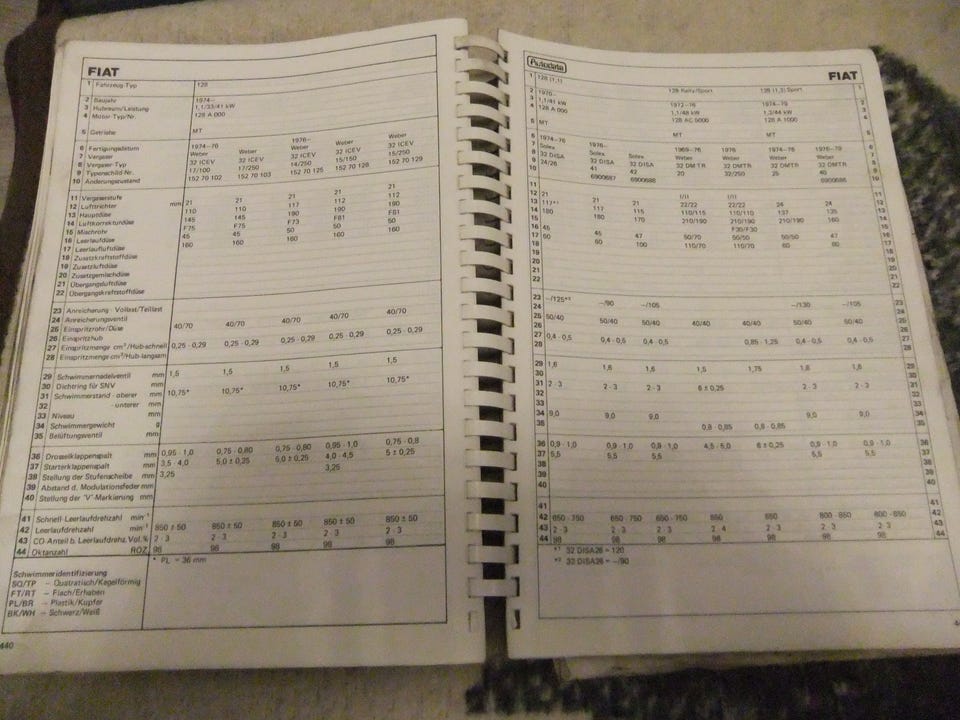 FIAT
1 Fahrzeug-Typ 128
2 Baujahr 1974–
3 Hubraum/Leistung 1,1/33/41 kW
4 Motor-Typ/Nr. 128 A 000
5 Getriebe MT
6 Fertigungsdatum 1974–76 1976–
7 Vergaser Weber Weber Weber Weber Weber
8 Vergaser-Typ 32 ICEV 32 ICEV 32 ICEV 32 ICEV 32 ICEV
9 Typenschild Nr. 17/100 17/250 14/250 15/150 15/250
10 Änderungszustand 152 70 102 152 70 103 152 70 125 152 70 128 152 70 129
11 Vergaserstufe
12 Luftrichter mm 21 21 21 21 21
13 Hauptdüse 110 110 117 112 112
14 Luftkorrekturdüse 145 145 190 190 190
15 Mischrohr F75 F75 F73 F81 F81
16 Leerlaufdüse 45 45 50 50 50
17 Leerlaufluftdüse 160 160 160 160 160
18 Zusatzkraftstoffdüse
19 Zusatzluftdüse
20 Zusatzgemischdüse
21 Übergangsluftdüse
22 Übergangskraftstoffdüse
23 Anreicherung - Vollast/Teillast
24 Anreicherungsventil
25 Einspritzrohr/Düse 40/70 40/70 40/70 40/70 40/70
26 Einspritzhub
27 Einspritzmenge cm³/Hub-schnell 0,25 - 0,29 0,25 - 0,29 0,25 - 0,29 0,25 - 0,29 0,25 - 0,29
28 Einspritzmenge cm³/Hub-langsam
29 Schwimmernadelventil mm 1,5 1,5 1,5 1,5 1,5
30 Dichtring für SNV mm
31 Schwimmerstand - oberer mm 10,75* 10,75* 10,75* 10,75* 10,75*
32 - unterer mm
33 Niveau mm
34 Schwimmergewicht g
35 Belüftungsventil mm
36 Drosselklappenspalt mm 0,95 - 1,0 0,75 - 0,80 0,75 - 0,80 0,95 - 1,0 0,75 - 0,8
37 Starterklappenspalt mm 3,5 - 4,0 5,0 ± 0,25 5,0 ± 0,25 4,0 - 4,5 5 ± 0,25
38 Stellung der Stufenscheibe mm 3,25 3,25
39 Abstand d. Modulationsfeder mm
40 Stellung der 'V'-Markierung mm
41 Schnell-Leerlaufdrehzahl min⁻¹
42 Leerlaufdrehzahl min⁻¹ 850 ± 50 850 ± 50 850 ± 50 850 ± 50 850 ± 50
43 CO-Anteil b. Leerlaufdrehz. Vol.% 2 - 3 2 - 3 2 - 3 2 - 3 2 - 3
44 Oktanzahl ROZ 98 98 98 98 98
* PL = 36 mm
Schwimmeridentifizierung
SQ/TP – Quatratisch/Kegelförmig
FT/RT – Flach/Erhaben
PL/BR – Plastik/Kupfer
BK/WH – Schwarz/Weiß
440
Autodata
FIAT
1 128 (1,1) 128 Rally/Sport 128 (1,3) Sport 1
2 1970– 1972–76 1974–79 2
3 1,1/41 kW 1,1/48 kW 1,3/44 kW 3
4 128 A 000 128 AC 5000 128 A 1000 4
5 MT MT MT 5
6 1974–76 1976– 1969–76 1976 1974–76 1976–79 6
7 Solex Solex Solex Weber Weber Weber Weber 7
8 32 DISA 32 DISA 32 DISA 32 DMTR 32 DMTR 32 DMTR 32 DMTR 8
9 24/26 41 42 20 32/250 25 40 9
10 6900687 6900686 6900686 10
11 I/II I/II 11
12 21 21 21 22/22 22/22 24 24 12
13 117*¹ 117 115 110/115 110/110 137 135 13
14 180 180 170 210/190 210/190 210/190 160 14
15 F30/F30 15
16 45 45 47 50/70 50/50 50/50 47 16
17 60 60 100 110/70 110/70 60 60 17
18 18
19 19
20 20
21 21
22 22
23 –/125*² –/90 –/105 –/130 –/105 23
24 24
25 50/40 50/40 50/40 40/40 40/40 50/40 50/40 25
26 26
27 0,4 - 0,5 0,4 - 0,5 0,4 - 0,5 0,85 - 1,25 0,4 - 0,5 0,4 - 0,5 27
28 28
29 1,6 1,6 1,6 1,5 1,75 1,6 1,6 29
30 30
31 2 - 3 2 - 3 2 - 3 6 ± 0,25 2 - 3 2 - 3 31
32 32
33 33
34 9,0 9,0 9,0 9,0 9,0 34
35 0,8 - 0,85 0,8 - 0,85 35
36 0,9 - 1,0 0,9 - 1,0 0,9 - 1,0 4,5 - 5,0 6 ± 0,25 0,9 - 1,0 0,9 - 1,0 36
37 5,5 5,5 5,5 5,5 5,5 37
38 38
39 39
40 40
41 41
42 650 - 750 650 - 750 650 - 750 850 850 800 - 850 800 - 850 42
43 2 - 3 2 - 3 2 - 3 2 - 4 2 - 3 2 - 3 2 - 3 43
44 98 98 98 98 98 98 98 44
*¹ 32 DISA26 = 120
*² 32 DISA26 = –/90